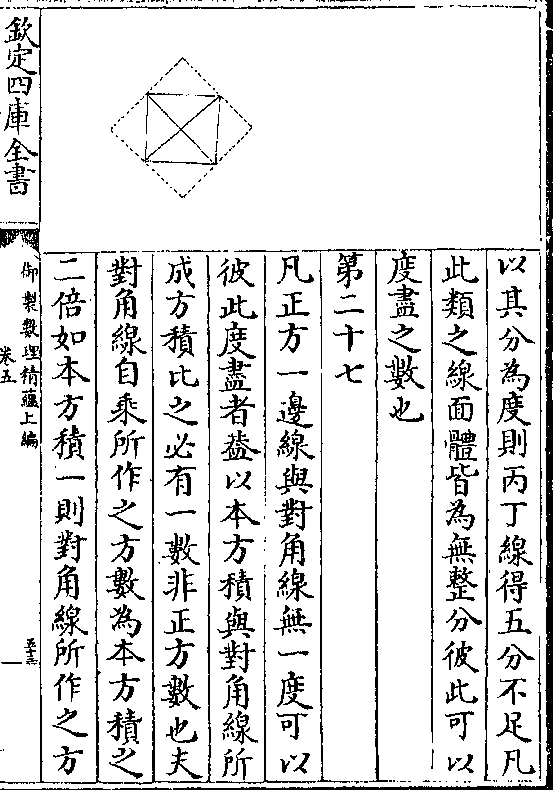 以其分為度則丙丁線得五分不足凡
此類之線面體皆為無整分彼此可以
度盡之數也
第二十七
凡正方一邊線與對角線無一度可以
彼此度盡者葢以本方積與對角線所
成方積比之必有一數非正方數也夫
對角線自乘所作之方數為本方積之
二倍如本方積一則對角線所作之方
欽定四庫全書
御製數理精蘊上編
卷五
五十三